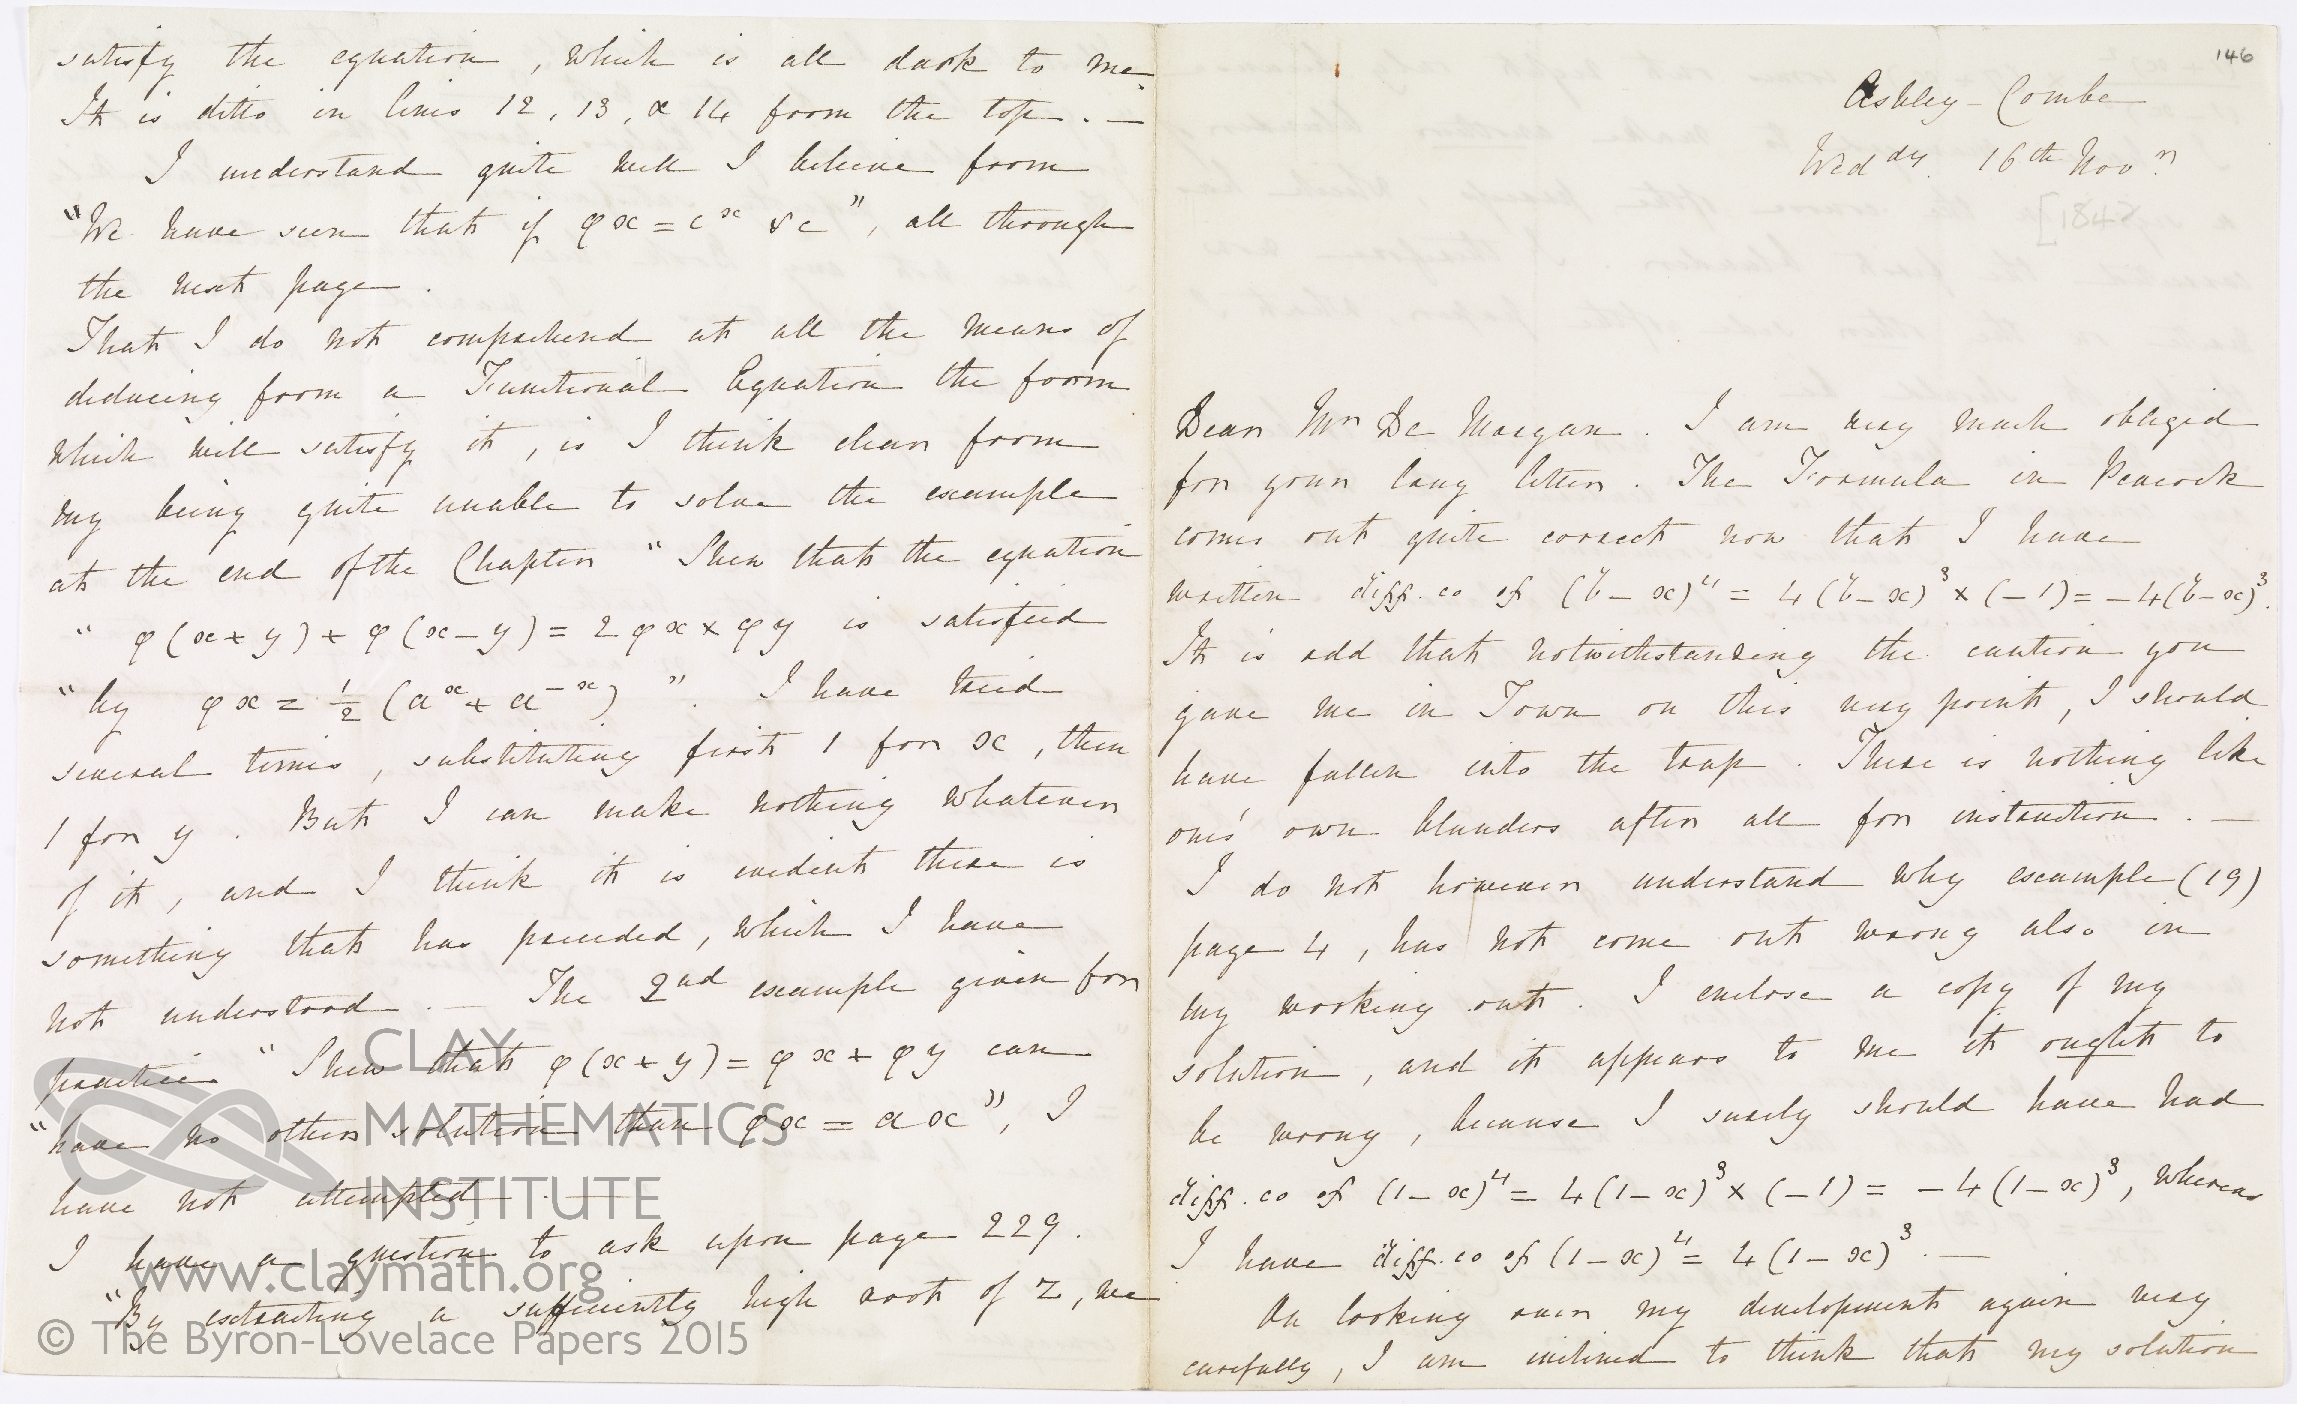 satisfy the equation, which is all dark to me.
It is ditto in lines 12, 13, & 14 from the top. —
I understand quite well I believe from
"We have seen that if φx = cˣ &c", all through
the next page.
That I do not comprehend at all the means of
deducing from a Functional Equation the form
which will satisfy it, is I think clear from
my being quite unable to solve the example
at the end of the Chapter "Shew that the equation
" φ(x + y) + φ(x − y) = 2φx × φy is satisfied
"by φx = ½(aˣ + a⁻ˣ)". I have tried
several times, substituting first 1 for x, then
1 for y. But I can make nothing whatever
of it, and I think it is evident there is
something that has preceded, which I have
not understood. — The 2nd example given for
practice "Shew that φ(x + y) = φx + φy can
"have no other solution than φx = ax", I
have not attempted. —
I have a question to ask upon page 229.
"By extracting a sufficiently high root of z, we
146
Ashley-Combe
Wed^dy. 16th Nov^r
[1842
Dear Mr De Morgan. I am very much obliged
for your long letter. The Formula in Peacock
comes out quite correct now that I have
written diff. co of (b − x)⁴ = 4(b − x)³ × (−1) = −4(b − x)³.
It is odd that notwithstanding the caution you
gave me in Town on this very point, I should
have fallen into the trap. There is nothing like
one's own blunders after all for instruction. —
I do not however understand why example (19)
page 4, has not come out wrong also in
my working out. I enclose a copy of my
solution, and it appears to me it ought to
be wrong, because I surely should have had
diff. co of (1 − x)⁴ = 4(1 − x)³ × (−1) = −4(1 − x)³, whereas
I have diff. co of (1 − x)⁴ = 4(1 − x)³. —
On looking over my development again very
carefully, I am inclined to think that my solution
CLAY
MATHEMATICS
INSTITUTE
www.claymath.org
© The Byron-Lovelace Papers 2015